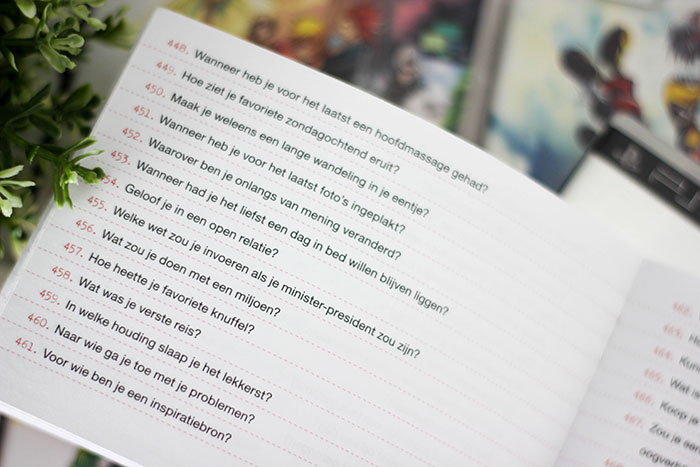 448. Wanneer heb je voor het laatst een hoofdmassage gehad?
449. Hoe ziet je favoriete zondagochtend eruit?
450. Maak je weleens een lange wandeling in je eentje?
451. Wanneer heb je voor het laatst foto's ingeplakt?
452. Waarover ben je onlangs van mening veranderd?
453. Wanneer had je het liefst een dag in bed willen blijven liggen?
454. Geloof je in een open relatie?
455. Welke wet zou je invoeren als je minister-president zou zijn?
456. Wat zou je doen met een miljoen?
457. Hoe heette je favoriete knuffel?
458. Wat was je verste reis?
459. In welke houding slaap je het lekkerst?
460. Naar wie ga je toe met je problemen?
461. Voor wie ben je een inspiratiebron?
462.
463. Ho
464. Kun
465. Wat is
466. Koop je
467. Zou je een
oogver